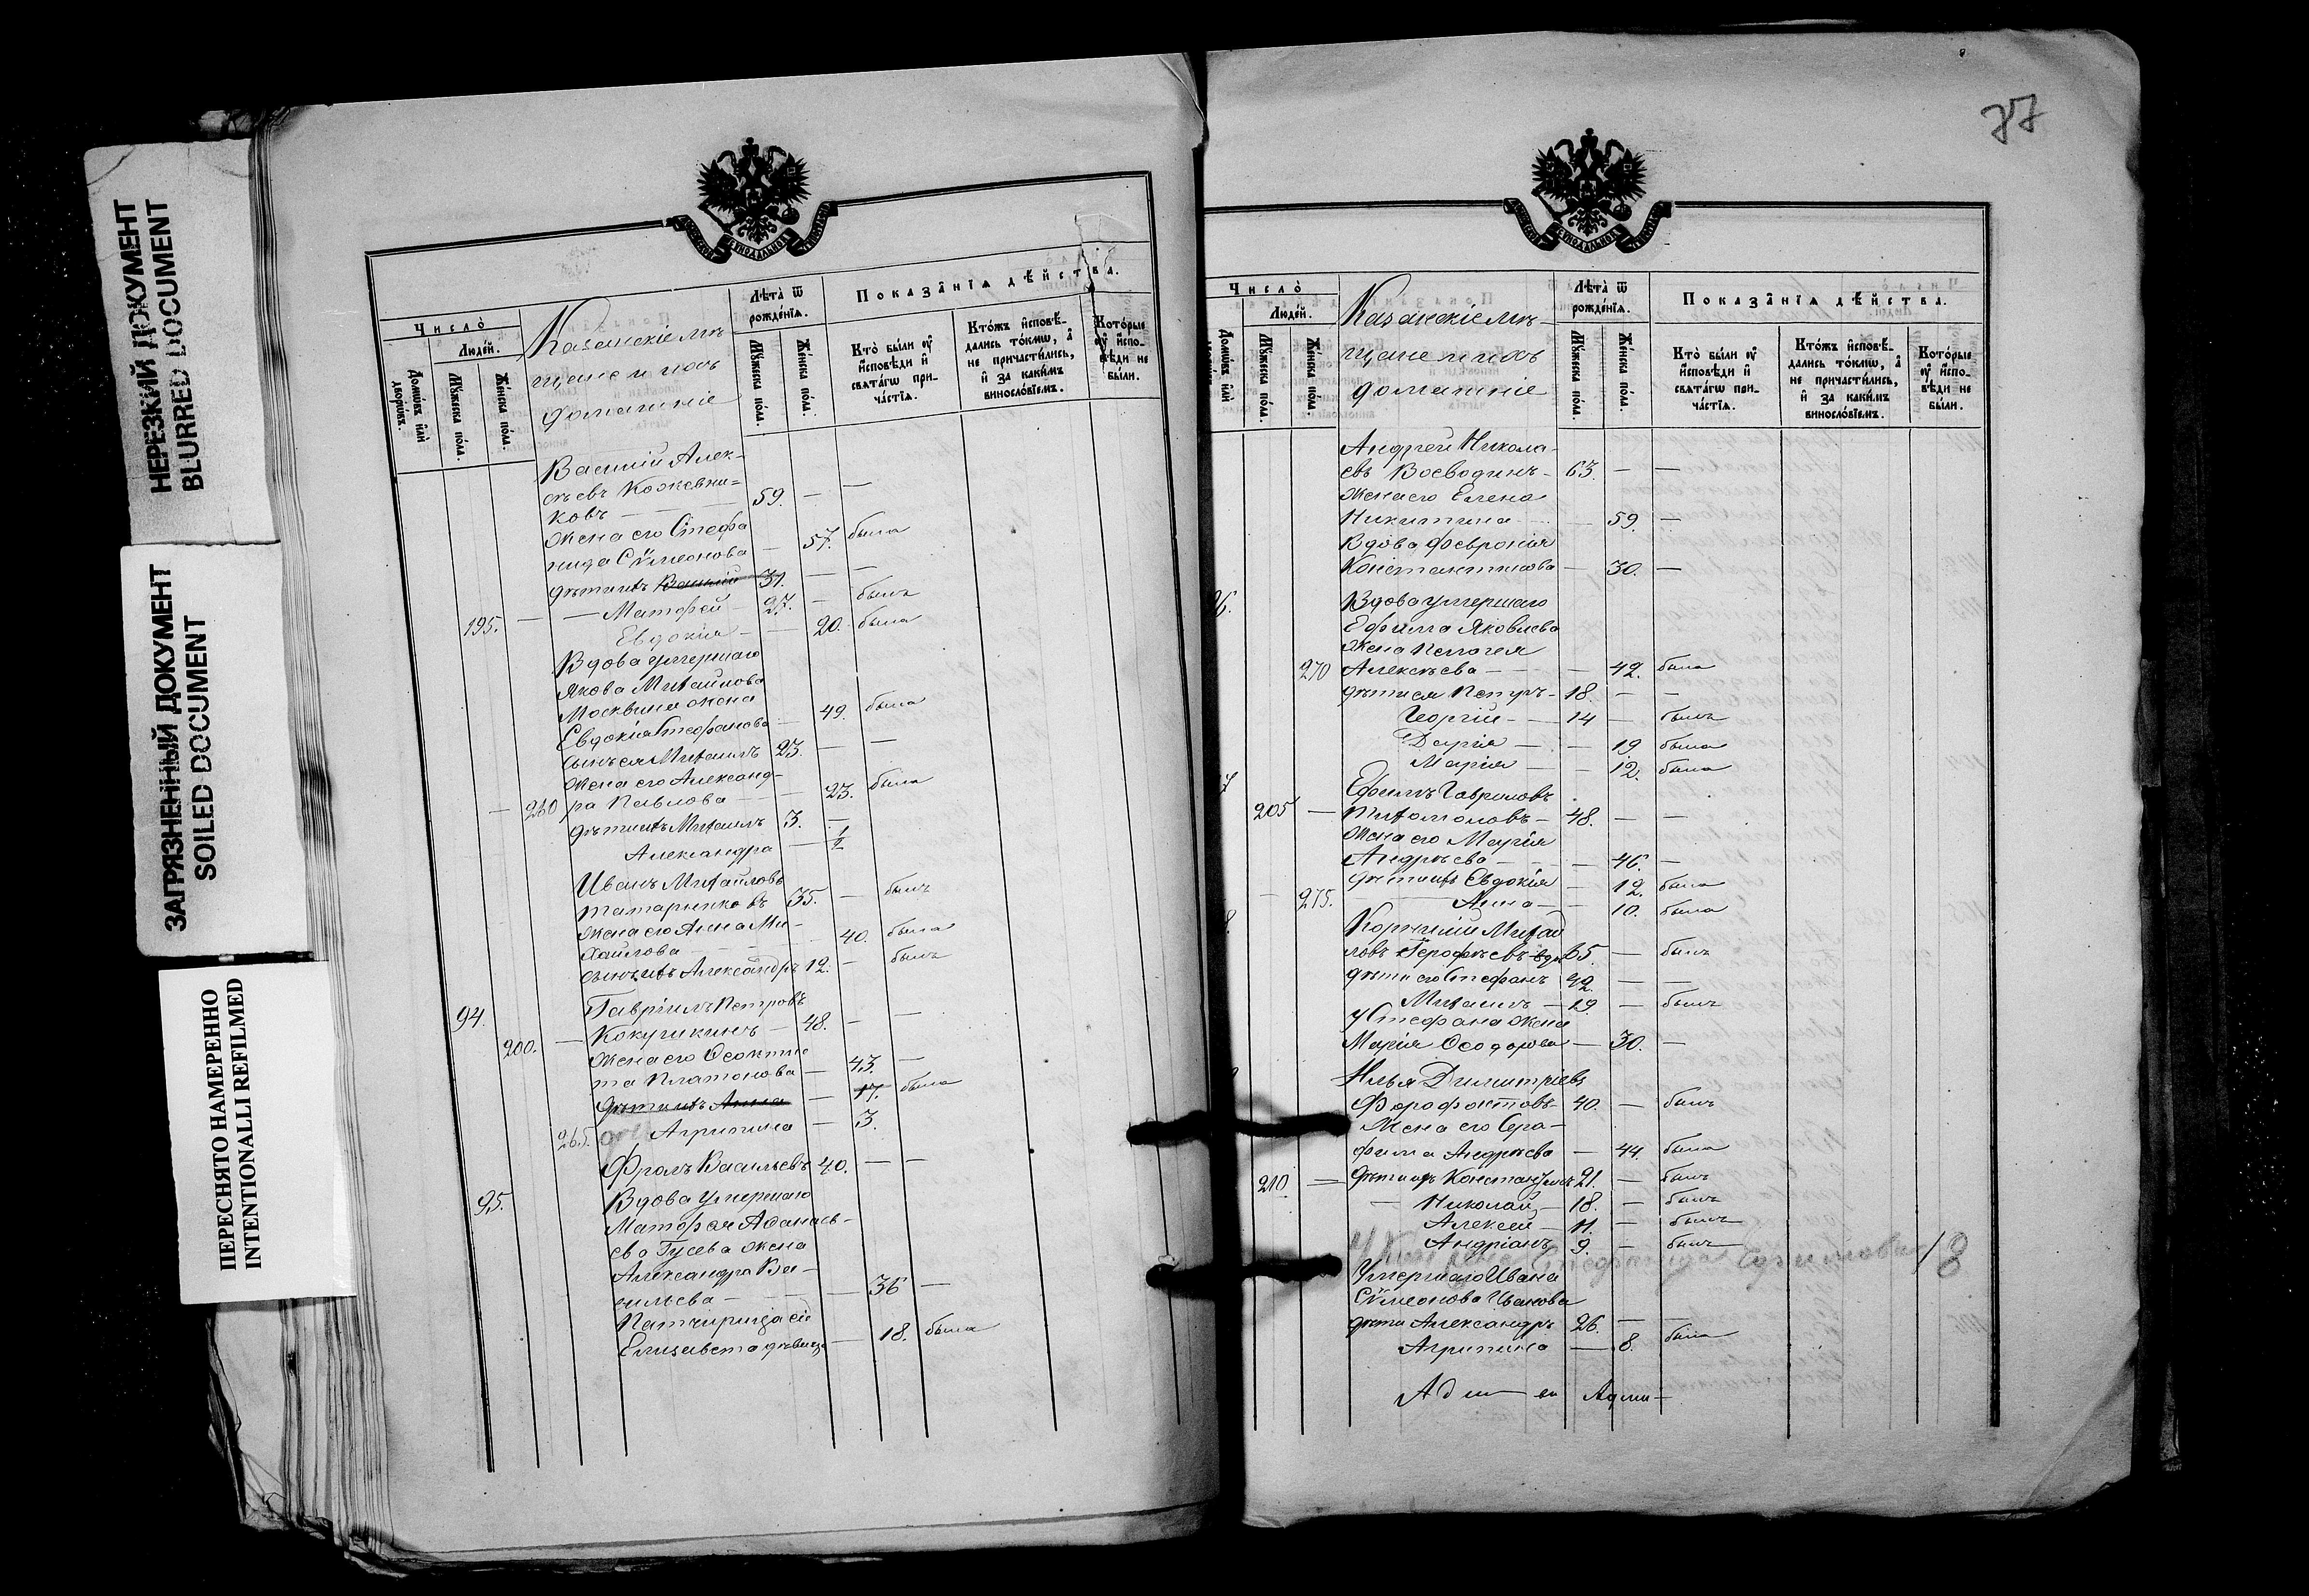 НЕРЕЗКИЙ ДОКУМЕНТ
BLURRED DOCUMENT
ЗАГРЯЗНЕННЫЙ ДОКУМЕНТ
SOILED DOCUMENT
ПЕРЕСНЯТО НАМЕРЕННО
INTENTIONALLI REFILMED
Число̀
Людей.
Домѡвъ или дворѡвъ.
Мꙋжеска полꙋ.
Женска полꙋ.
Казанскіе мѣ-
щане и ихъ
домашніе
Лѣта̀ ѿ рожденїѧ.
Мꙋжеска полꙋ.
Женска полꙋ.
Показанїѧ дѣйства.
Кто̀ были оу҆ исповѣди и свѧтагѡ при-
частїѧ.
Ктожъ исповѣ-
дались токмѡ, а҆
не причастились,
и҆ за какимъ
винословїемъ.
Которые оу҆ испо-
вѣди не были.
Василій Алек-
сѣевъ Кожевни=
ковъ — 59. — —
Жена его Стефа
нида Сѷмеонова — 57. была
дѣти ихъ Василій 31. — —
195. — — Матфей — 27. — былъ
Евдокія — — 20. была
Вдова умершаго
Якова Михайлова
Москвина жена
Евдокія Стефанова — 49. была
сынъ ея Михаилъ 23. — —
Жена его Александ-
— 260 ра Павлова — — 23. была
дѣти ихъ Михаилъ 3. —
Александра —
Иванъ Михайловъ
Татаринковъ 35. — былъ
Жена его Анна Ми-
хайлова — 40. была
сынъ ихъ Александръ 12. — былъ
94. Гавріилъ Петровъ
200. — Кокушкинъ — 48. — —
Жена его Ѳеокти
та Платонова — 43. —
дѣти ихъ Анна — 17. была
265. Агрипина — 3.
Фролъ Васильевъ 40. — —
95. Вдова умершаго
Матфея Аѳанась-
ева Гусева жена
Александра Ва-
сильева — — 36 —
Падчерица ей
Елизавета дѣвица — 18. была
77
Число̀
Людей.
Домѡвъ или
Мꙋжеска полꙋ.
Женска полꙋ.
Казанскіе мѣ-
щане и ихъ
домашніе
Лѣта̀ ѿ рожденїѧ.
Мꙋжеска полꙋ.
Женска полꙋ.
Показанїѧ дѣйства.
Кто̀ были оу҆ исповѣди и свѧтагѡ при-
частїѧ.
Ктожъ исповѣ-
дались токмѡ, а҆
не причастились,
и҆ за какимъ
винословїемъ.
Которые оу҆ испо-
вѣди не были.
Андрей Никола-
евъ Воеводинъ — 63. — —
Жена его Елена
Никитина — — 59. —
Вдова Феврония
Константинова — 30. —
6. Вдова умершаго
Ефима Яковлева
жена Пелагея
270 Алексѣева — — 42. была
дѣти ея Петръ — 18. — —
Георгій — 14 — былъ
Дарія — — 19 была
Марія — — 12. была
7 Ефимъ Гавриловъ
205 — — 48. — —
Жена его Марія
Андрѣева — — 46. —
дѣти ихъ Евдокія — 12. была
— 275. Анна — — 10. была
8. Корнилій Михай
ловъ Герофѣевъ вдов 65. — былъ
дѣти его Стефанъ 42. — —
Михаилъ — 19. — былъ
у Стефана жена
Марія Ѳеодорова — 30. —
Илья Димитріевъ
Ферофонтовъ 40. — былъ
Жена его Сера-
фима Андрѣева — 44. была
210 — дѣти ихъ Константинъ 21. — былъ
— Николай — 18. — былъ
Алексей — 11. — былъ
Андріанъ 9. — былъ
18
Умершаго Ивана
Сѷмеонова Иванова
дѣти Александръ 26. — —
Агрипина — 8. была